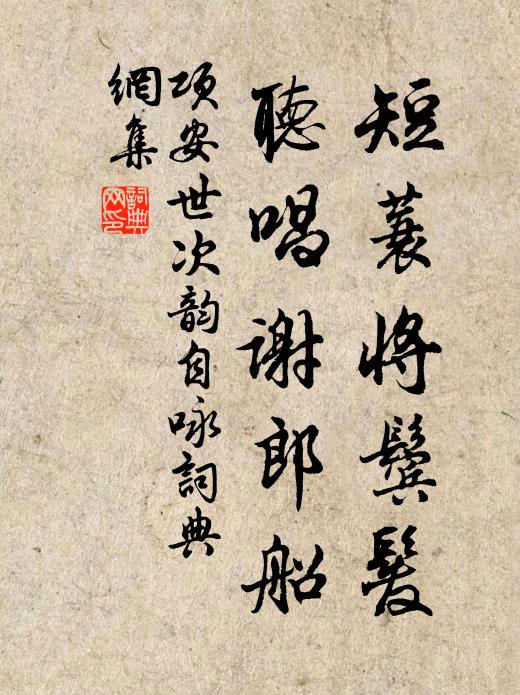 短蓑将鬓髮
聽唱謝郎船
項安世次韵自咏詞典
網集
詞典網印